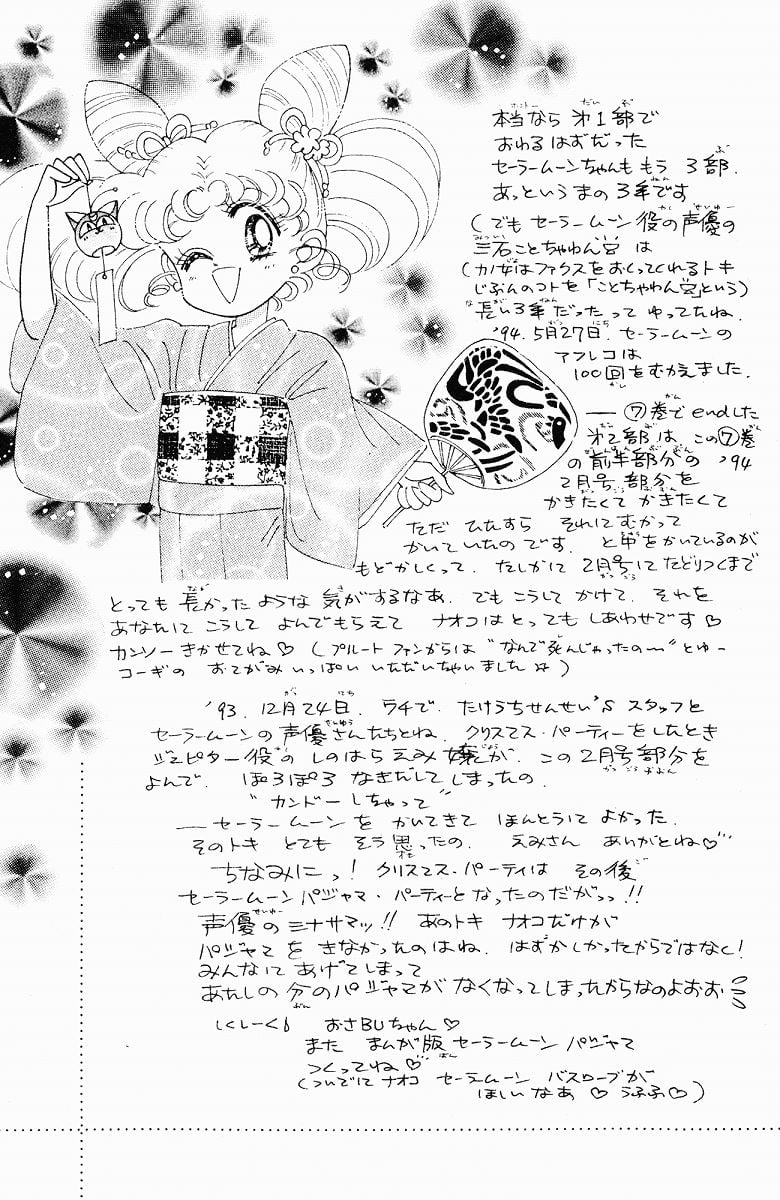 本当なら 第1部で
おわるはずだった
セーラームーンちゃんも もう 3部.
あっというまの 3年です
(でも セーラームーン役の声優の
三石ことちゃわん宮 は
(カノ女はファクスをおくってくれるトキ
じぶんのコトを「ことちゃわん宮」という)
長い3年だったって ゆってたね.
'94.5月27日.セーラームーンの
アフレコは
100回をむかえました.
―― ⑦巻でendした
第2部は、この⑦巻
の前半部分の '94
2月号部分を
かきたくて かきたくて
ただ ひたすら それにむかって
かいていたのです. と中をかいているのが
もどかしくって. たしかに 2月号にたどりつくまで
とっても 長かったような 気がするなあ. でもこうして かけて. それを
あなたに こうして よんでもらえて ナオコは とっても しあわせです♡
カンソー きかせてね♡ (プルート ファンからは "なんで死んじゃったの〜" とゆー
コーギの おてがみ いっぱい いただいちゃいました☆)
'93.12月24日. ウチで. たけうちせんせい'S スタッフと
セーラームーンの声優さんたちとね. クリスマス・パーティーをしたとき
ジュピター役の しのはら えみ 嬢が. この 2月号部分を
よんで. ぽろぽろ なきだしてしまったの.
"カンドーしちゃって"
―― セーラームーン を かいてきて ほんとうに よかった.
そのトキ とても そう思ったの. えみさん ありがとね♡
ちなみにっ! クリスマス・パーティは その後
セーラームーン パジャマ・パーティーと なったのだがっっ!!
声優のミナサマッ!! あのトキ ナオコだけが
パジャマ を きなかったのはね. はずかしかったからではなく!
みんなに あげてしまって
あたしの 分のパジャマが なくなってしまったからなのよおお
しくしーく おさBUちゃん♡
また まんが版 セーラームーン パジャマ
つくってね♡
(ついでに ナオコ セーラームーン バスローブが
ほしいなあ ♡ うふふ♡)